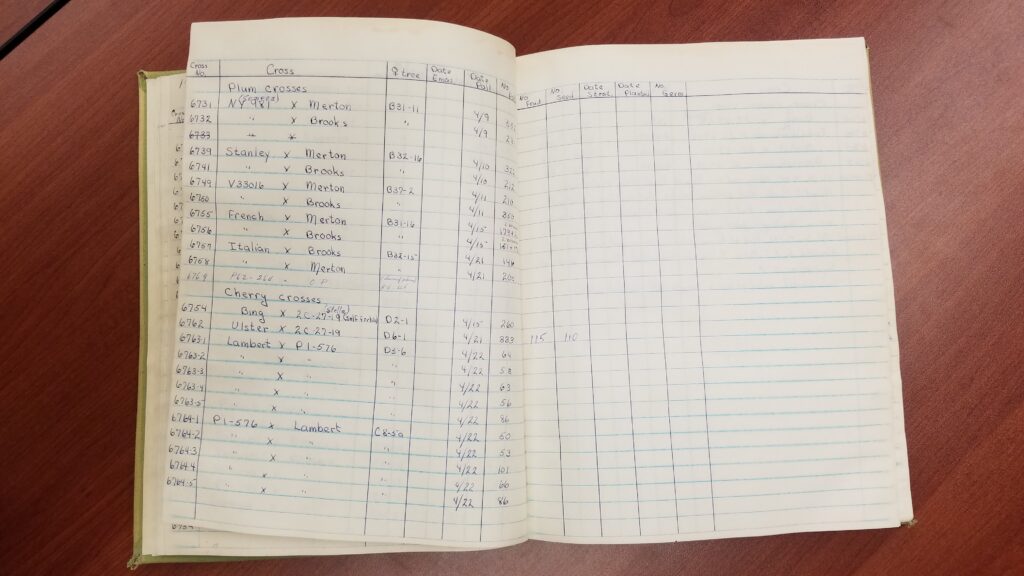 Cross No. Cross ♀ tree Date Emas. Date Poll. No. No Fruit No Seed Date Strat. Date Planted No. Germ
Plum crosses
6731 NY 981 x Merton B31-11 4/9
6732 " x Brooks " 4/9
6733 " x
6739 Stanley x Merton B32-16 4/10
6741 " x Brooks " 4/10 212
6749 V33016 x Merton B37-2 4/11 210
6750 " x Brooks " 4/11
6755 French x Merton B31-16 4/15
6756 " x Brooks " 4/15
6757 Italian x Brooks B32-15 4/21
6758 " x Merton " 4/21
6769
Cherry crosses
6754 Bing x 2C-27-19 (Stella) D2-1 4/15 260
6762 Ulster x 2C-27-19 D6-1 4/21 883 115 110
6763-1 Lambert x P1-576 D5-6 4/22 64
6763-2 " x " " 4/22 58
6763-3 " x " " 4/22 63
6763-4 " x " " 4/22 56
6763-5 " x " " 4/22 86
6764-1 P1-576 x Lambert C8-50 4/22 50
6764-2 " x " " 4/22 53
6764-3 " x " " 4/22 101
6764-4 " x " " 4/22 66
6764-5 " x " " 4/22 86